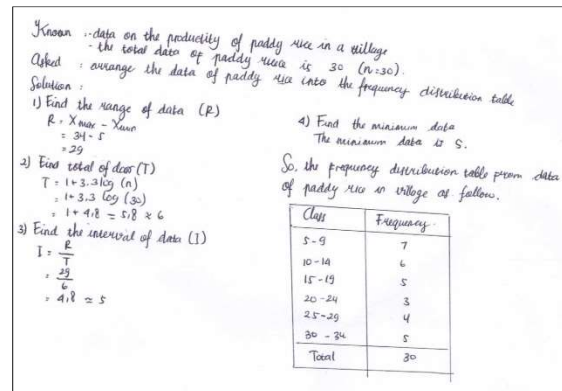 Known : - data on the productity of paddy rice in a village
- the total data of paddy rice is 30 (n=30).
Asked : arrange the data of paddy rice into the frequency distribution table
Solution :
1) Find the range of data (R)
R = Xmax - Xmin
= 34 - 5
= 29
2) Find total of data (T)
T = 1 + 3.3 log (n)
= 1 + 3.3 log (30)
= 1 + 4,8 = 5,8 ≈ 6
3) Find the interval of data (I)
I = R/T
= 29/6
= 4,8 ≃ 5
4) Find the minimum data
The minimum data is 5.
So, the frequency distribution table from data
of paddy rice in village as follow.
Class Frequency
5-9 7
10-14 6
15-19 5
20-24 3
25-29 4
30-34 5
Total 30